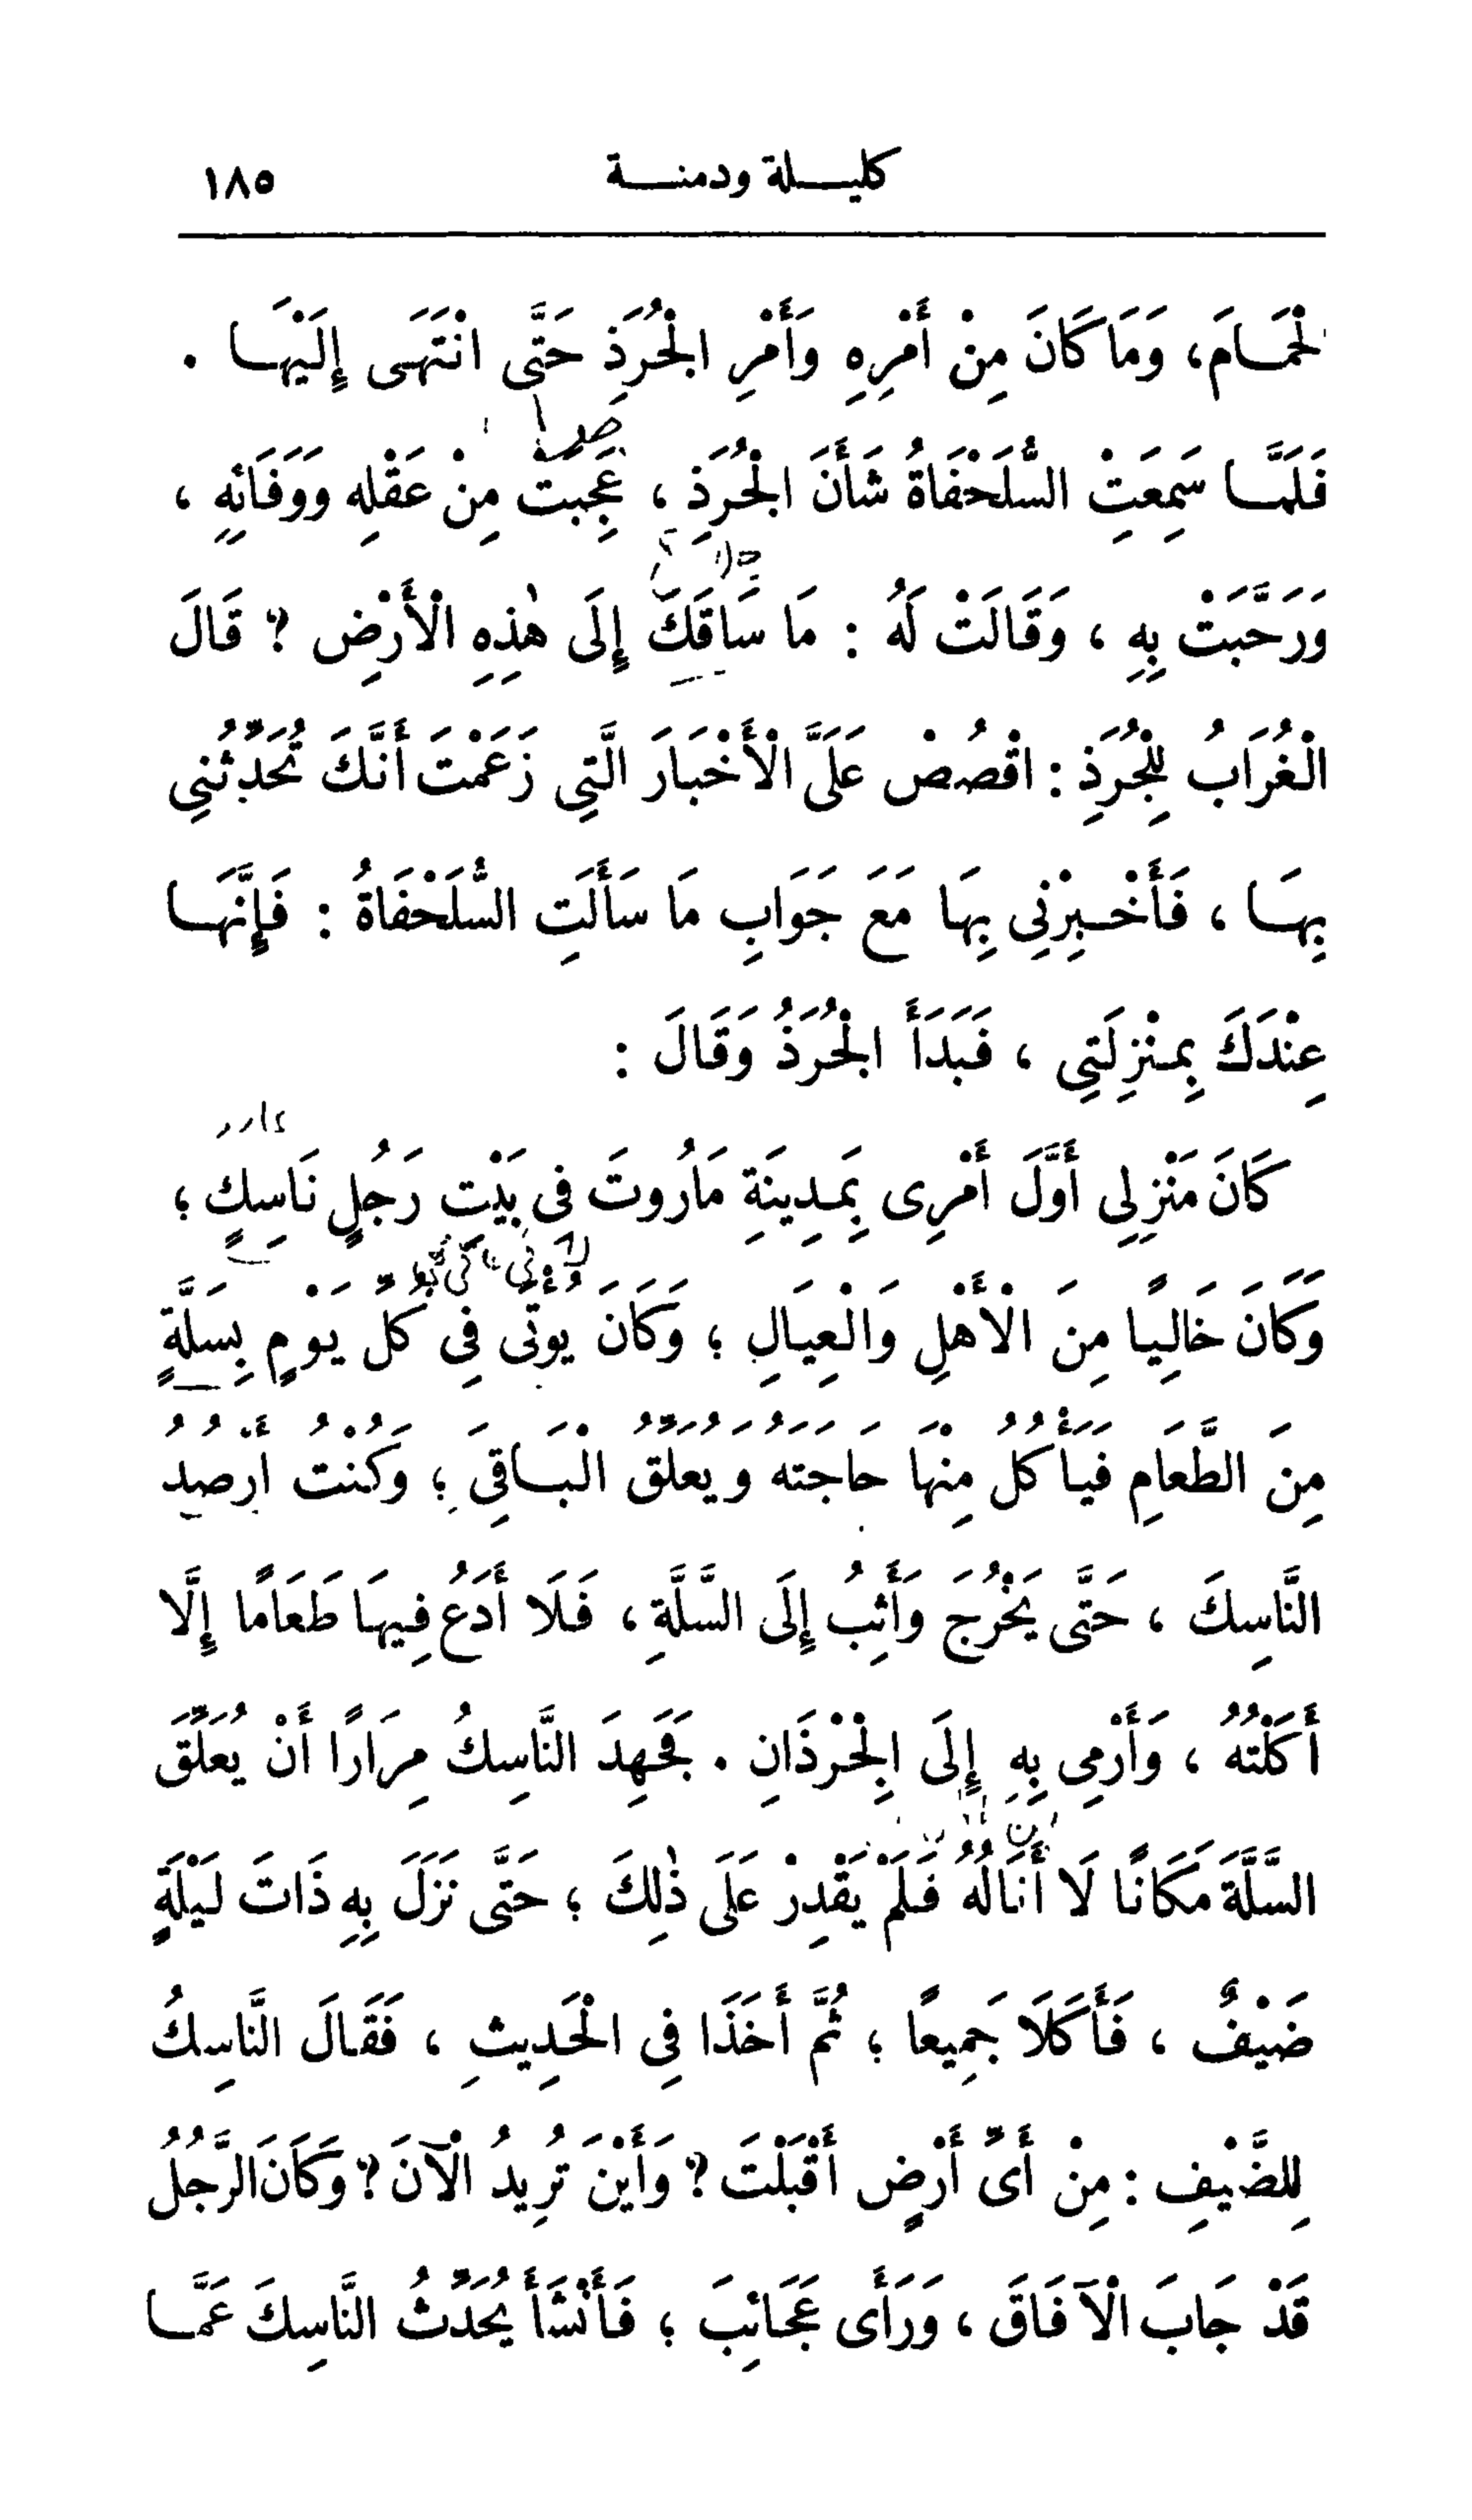 كليلة ودمنة ١٨٥
لحْمَامَ، وَمَا كَانَ مِنْ أَمْرِهِ وَأَمْرِ الْجُرَذِ حَتَّى انْتَهَى إِلَيْهَا .
فَلَمَّا سَمِعَتِ السُّلَحْفَاةُ شَأْنَ الْجُرَذِ ، عَجِبَتْ مِنْ عَقْلِهِ وَوَفَائِهِ ،
وَرَحَّبَتْ بِهِ ، وَقَالَتْ لَهُ : مَا سَاقَكَ إِلَى هٰذِهِ الْأَرْضِ ؟ قَالَ
الْغُرَابُ لِلْجُرَذِ : اقْصُصْ عَلَىَّ الْأَخْبَارَ الَّتِي زَعَمْتَ أَنَّكَ تُحَدِّثُنِي
بِهَا ، فَأَخْبِرْنِي بِهَا مَعَ جَوَابِ مَا سَأَلَتِ السُّلَحْفَاةُ : فَإِنَّهَا
عِنْدَكَ بِمَنْزِلَتِي ، فَبَدَأَ الْجُرَذُ وَقَالَ :
كَانَ مَنْزِلِي أَوَّلَ أَمْرِى بِمَدِينَةِ مَارُوتَ فِى بَيْتِ رَجُلٍ نَاسِكٍ ؛
وَكَانَ خَالِيًا مِنَ الْأَهْلِ وَالْعِيَالِ ؛ وَكَانَ يُؤْتَى فِي كُلِّ يَوْمٍ بِسَلَّةٍ
مِنَ الطَّعَامِ فَيَأْكُلُ مِنْهَا حَاجَتَهُ وَيُعَلِّقُ الْبَاقِىَ ؛ وَكُنْتُ أَرْصُدُ
النَّاسِكَ ، حَتَّى يَخْرُجَ وَأَثِبُ إِلَى السَّلَّةِ ، فَلَا أَدَعُ فِيهَا طَعَامًا إِلَّا
أَكَلْتُهُ ، وَأَرْمِى بِهِ إِلَى الْجِرْذَانِ . فَجَهِدَ النَّاسِكُ مِرَارًا أَنْ يُعَلِّقَ
السَّلَّةَ مَكَانًا لَا أَنَالُهُ فَلَمْ يَقْدِرْ عَلَى ذٰلِكَ ؛ حَتَّى نَزَلَ بِهِ ذَاتَ لَيْلَةٍ
ضَيْفٌ ، فَأَكَلَا جَمِيعًا ؛ ثُمَّ أَخَذَا فِي الْحَدِيثِ ، فَقَالَ النَّاسِكُ
لِلضَّيْفِ : مِنْ أَىِّ أَرْضٍ أَقْبَلْتَ ؟ وَأَيْنَ تُرِيدُ الْآنَ ؟ وَكَانَ الرَّجُلُ
قَدْ جَابَ الْآفَاقَ ، وَرَأَى عَجَائِبَ ؛ فَأَنْشَأَ يُحَدِّثُ النَّاسِكَ عَمَّا